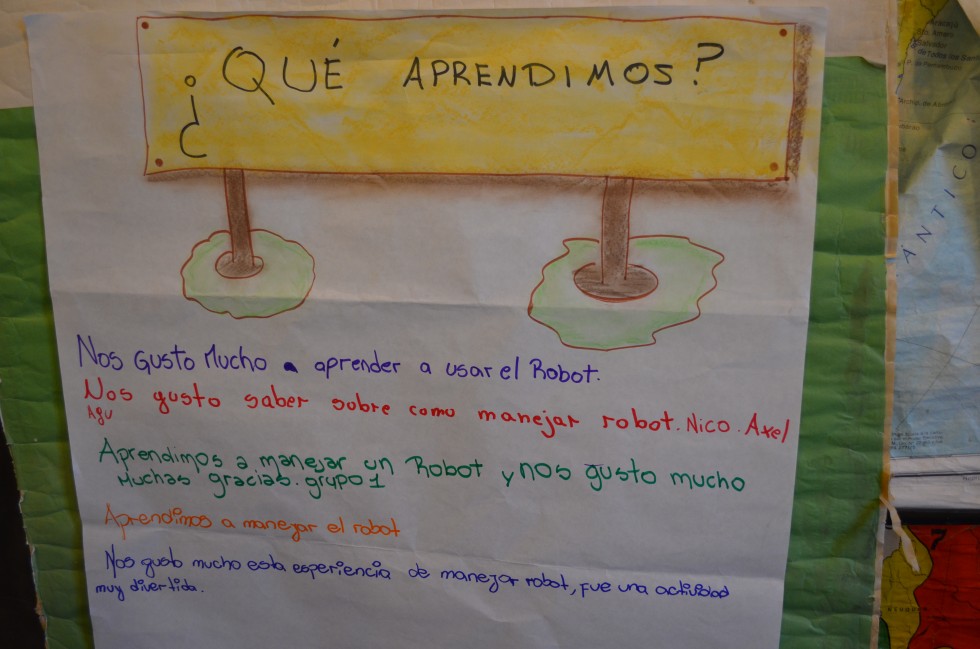 ¿QUÉ APRENDIMOS?
Nos Gusto Mucho a aprender a usar el Robot.
Nos gusto saber sobre como manejar robot. Nico. Axel
Agu
Aprendimos a manejar un Robot y nos gusto mucho
Muchas gracias. grupo 1
Aprendimos a manejar el robot
Nos gusto mucho esta esperiencia de manejar robot, fue una actividad
muy divertida.
ÁNTICO
7